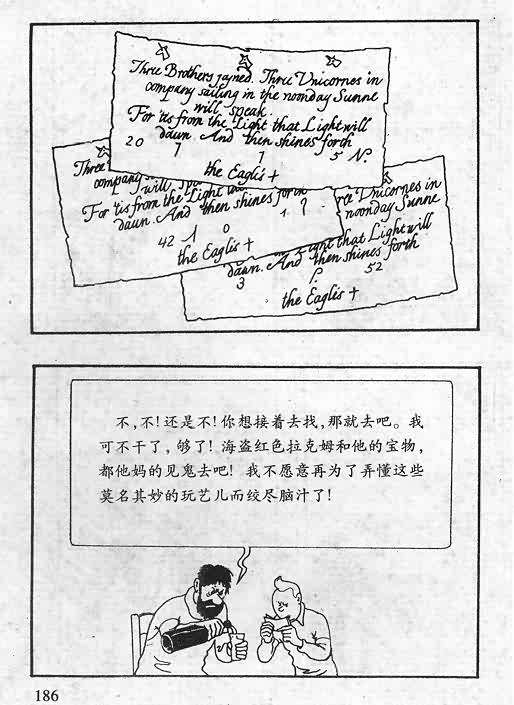 Three Brothers joyned. Three Unicornes in
company sailing in the noonday Sunne
will speak.
For 'tis from the Light that Light will
dawn. And then shines forth
20 7 1 5 N.
the Eaglis +
Three
company
will
For 'tis from the Light
dawn. And then shines forth
42 1 0 1
the Eaglis +
Unicornes in
noonday Sunne
Light that Light will
dawn. And then shines forth
3 52
the Eaglis +
不,不!还是不!你想接着去找,那就去吧。我
可不干了,够了!海盗红色拉克姆和他的宝物,
都他妈的见鬼去吧!我不愿意再为了弄懂这些
莫名其妙的玩艺儿而绞尽脑汁了!
186